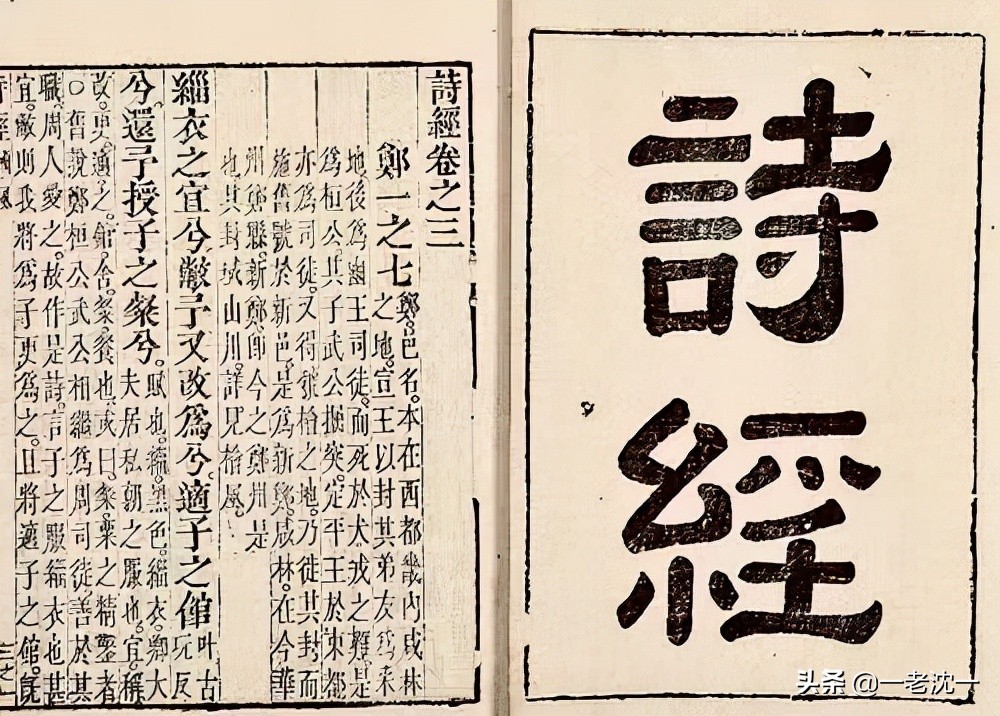 詩經
詩經卷之三
鄭一之七
鄭邑名。本在西都畿內咸林
之地。宣王以封其弟友為采
地後為幽王司徒。而死於犬戎之難。是
為桓公。其子武公掘突。定平王於東都
亦為司徒。又得虢檜之地。乃徙其封。而
施舊號於新邑。是為新鄭。咸林。在今華
州鄭縣。新鄭。即今之鄭州是
也。其封域山川。詳見檜風。
緇衣之宜兮。敝予又改為兮。適子之館
叶古
玩反
兮。還予授子之粲兮。
賦也。緇。黑色。緇衣。卿大
夫居私朝之服也。宜。稱
改。更。適。之。館。舍。粲。餐也。或曰。粲。粟之精鑿者
○舊說。鄭桓公武公。相繼為周司徒。善於其
職。周人愛之。故作是詩。言子之服緇衣也甚
宜。敝則我將為子更為之。且將適子之館。既
头条 @一老沈一